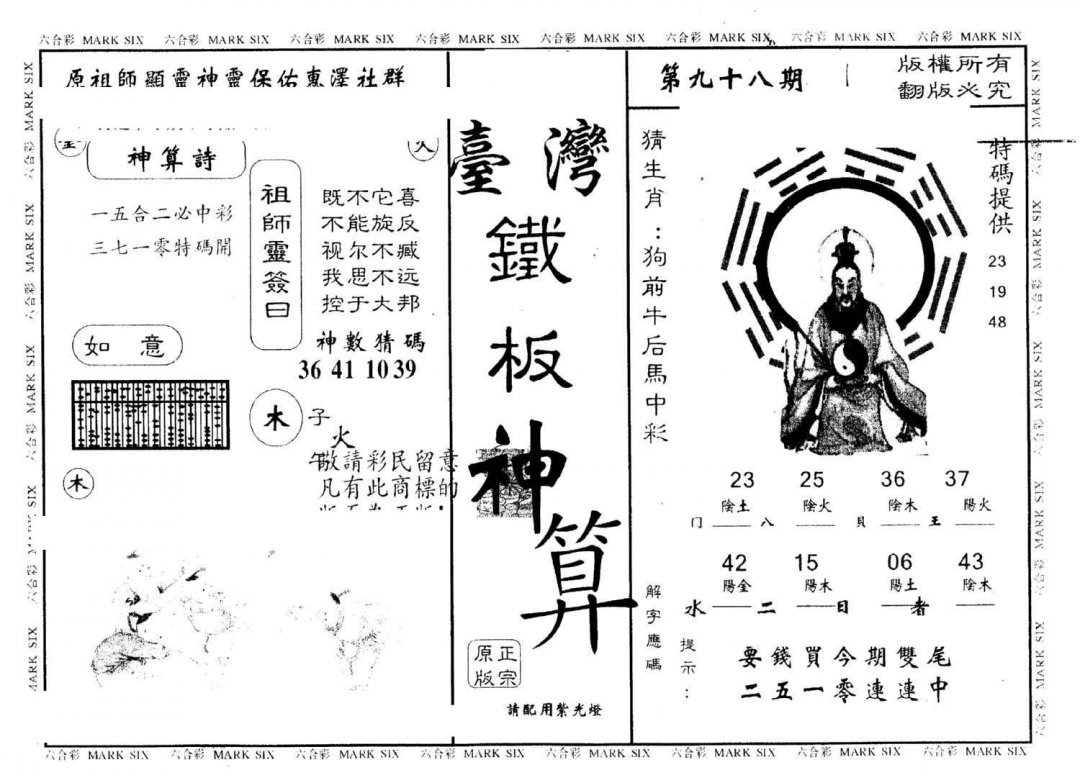 六合彩 MARK SIX 六合彩 MARK SIX 六合彩 MARK SIX 六合彩 MARK SIX 六合彩 MARK SIX 六合彩 MARK SIX 六合彩 MARK SIX 六合彩 MARK SIX
原祖師顯靈神靈保佑惠澤社群
火
神算詩
一五合二必中彩
三七一零特碼開
祖師靈簽曰
既不它喜
不能旋反
视尔不臧
我思不远
控于大邦
神數猜碼
36 41 10 39
如 意
木 子
火
木
敬請彩民留意
凡有此商標的
臺灣
鐵
板
神
算
正宗
原版
請配用紫光燈
第九十八期
版權所有
翻版必究
猜生肖：狗前牛后馬中彩
特碼提供
23
19
48
23 25 36 37
陰土 陰火 陰木 陽火
门 八 貝 王
42 15 06 43
陽金 陽木 陽土 陰木
水 二 日 者
解字應碼
提示：
要錢買今期雙尾
二五一零連連中
六合彩 MARK SIX 六合彩 MARK SIX 六合彩 MARK SIX 六合彩 MARK SIX 六合彩 MARK SIX 六合彩 MARK SIX 六合彩 MARK SIX 六合彩 MARK SIX
六合彩 MARK SIX 六合彩 MARK SIX 六合彩 MARK SIX 六合彩 MARK SIX
六合彩 MARK SIX 六合彩 MARK SIX 六合彩 MARK SIX 六合彩 MARK SIX 六合彩 MARK SIX